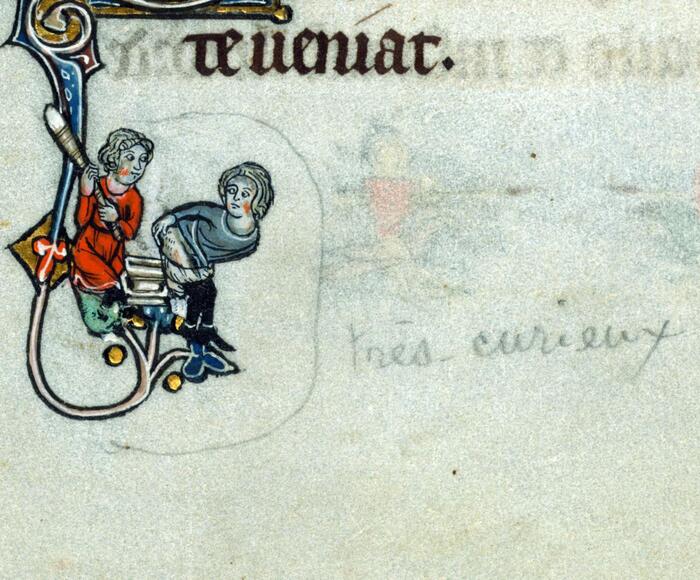 te ueniat.
très curieux